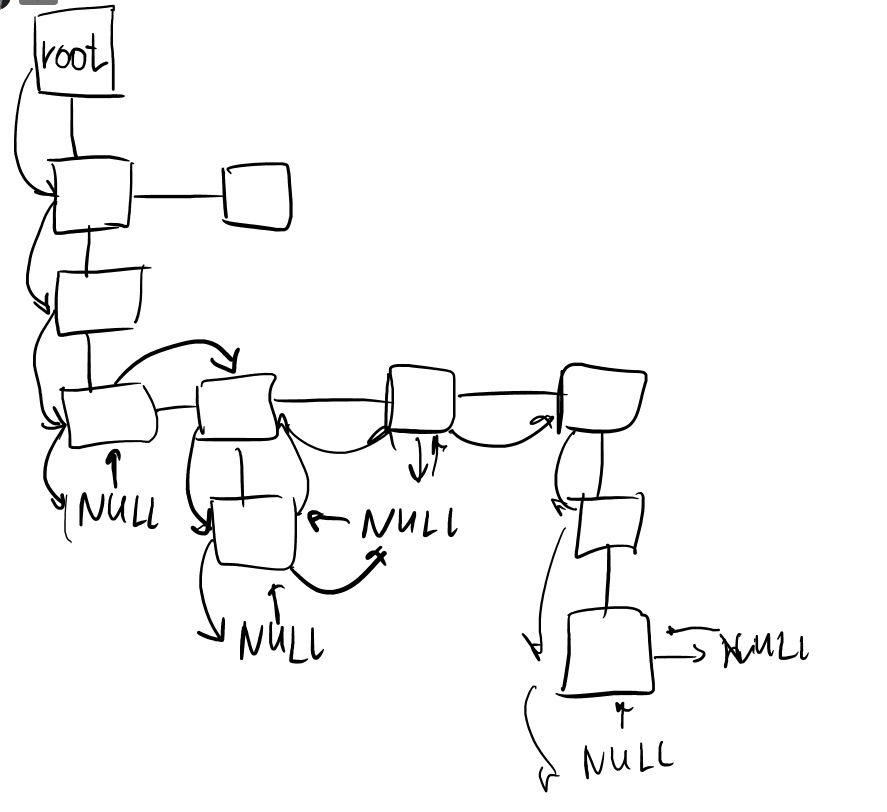 root
NULL
NULL
NULL
NULL
NULL